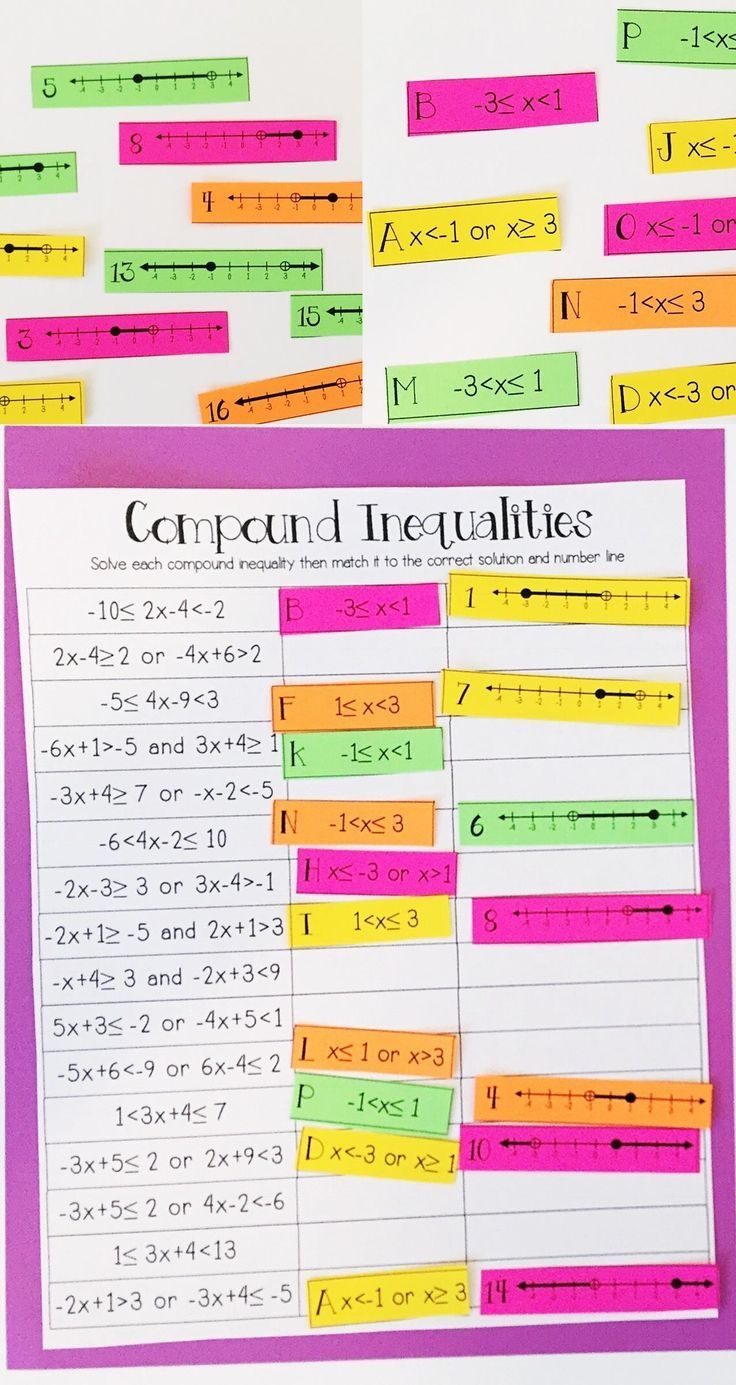 5
8
4
13
15
3
16
P -1<x≤
B -3≤ x<1
J x≤ -
A x<-1 or x≥ 3
O x≤ -1 or
N -1<x≤ 3
M -3<x≤ 1
D x<-3 or
Compound Inequalities
Solve each compound inequality then match it to the correct solution and number line
-10≤ 2x-4<-2 B -3≤ x<1 1
2x-4≥2 or -4x+6>2
-5≤ 4x-9<3 F 1≤ x<3 7
-6x+1>-5 and 3x+4≥ 1 K -1≤ x<1
-3x+4≥ 7 or -x-2<-5
-6<4x-2≤ 10 N -1<x≤ 3 6
-2x-3≥ 3 or 3x-4>-1 H x≤ -3 or x>1
-2x+1≥ -5 and 2x+1>3 I 1<x≤ 3 8
-x+4≥ 3 and -2x+3<9
5x+3≤ -2 or -4x+5<1
-5x+6<-9 or 6x-4≤ 2 L x≤ 1 or x>3
1<3x+4≤ 7 P -1<x≤ 1 4
-3x+5≤ 2 or 2x+9<3 D x<-3 or x≥ 1 10
-3x+5≤ 2 or 4x-2<-6
1≤ 3x+4<13
-2x+1>3 or -3x+4≤ -5 A x<-1 or x≥ 3 14